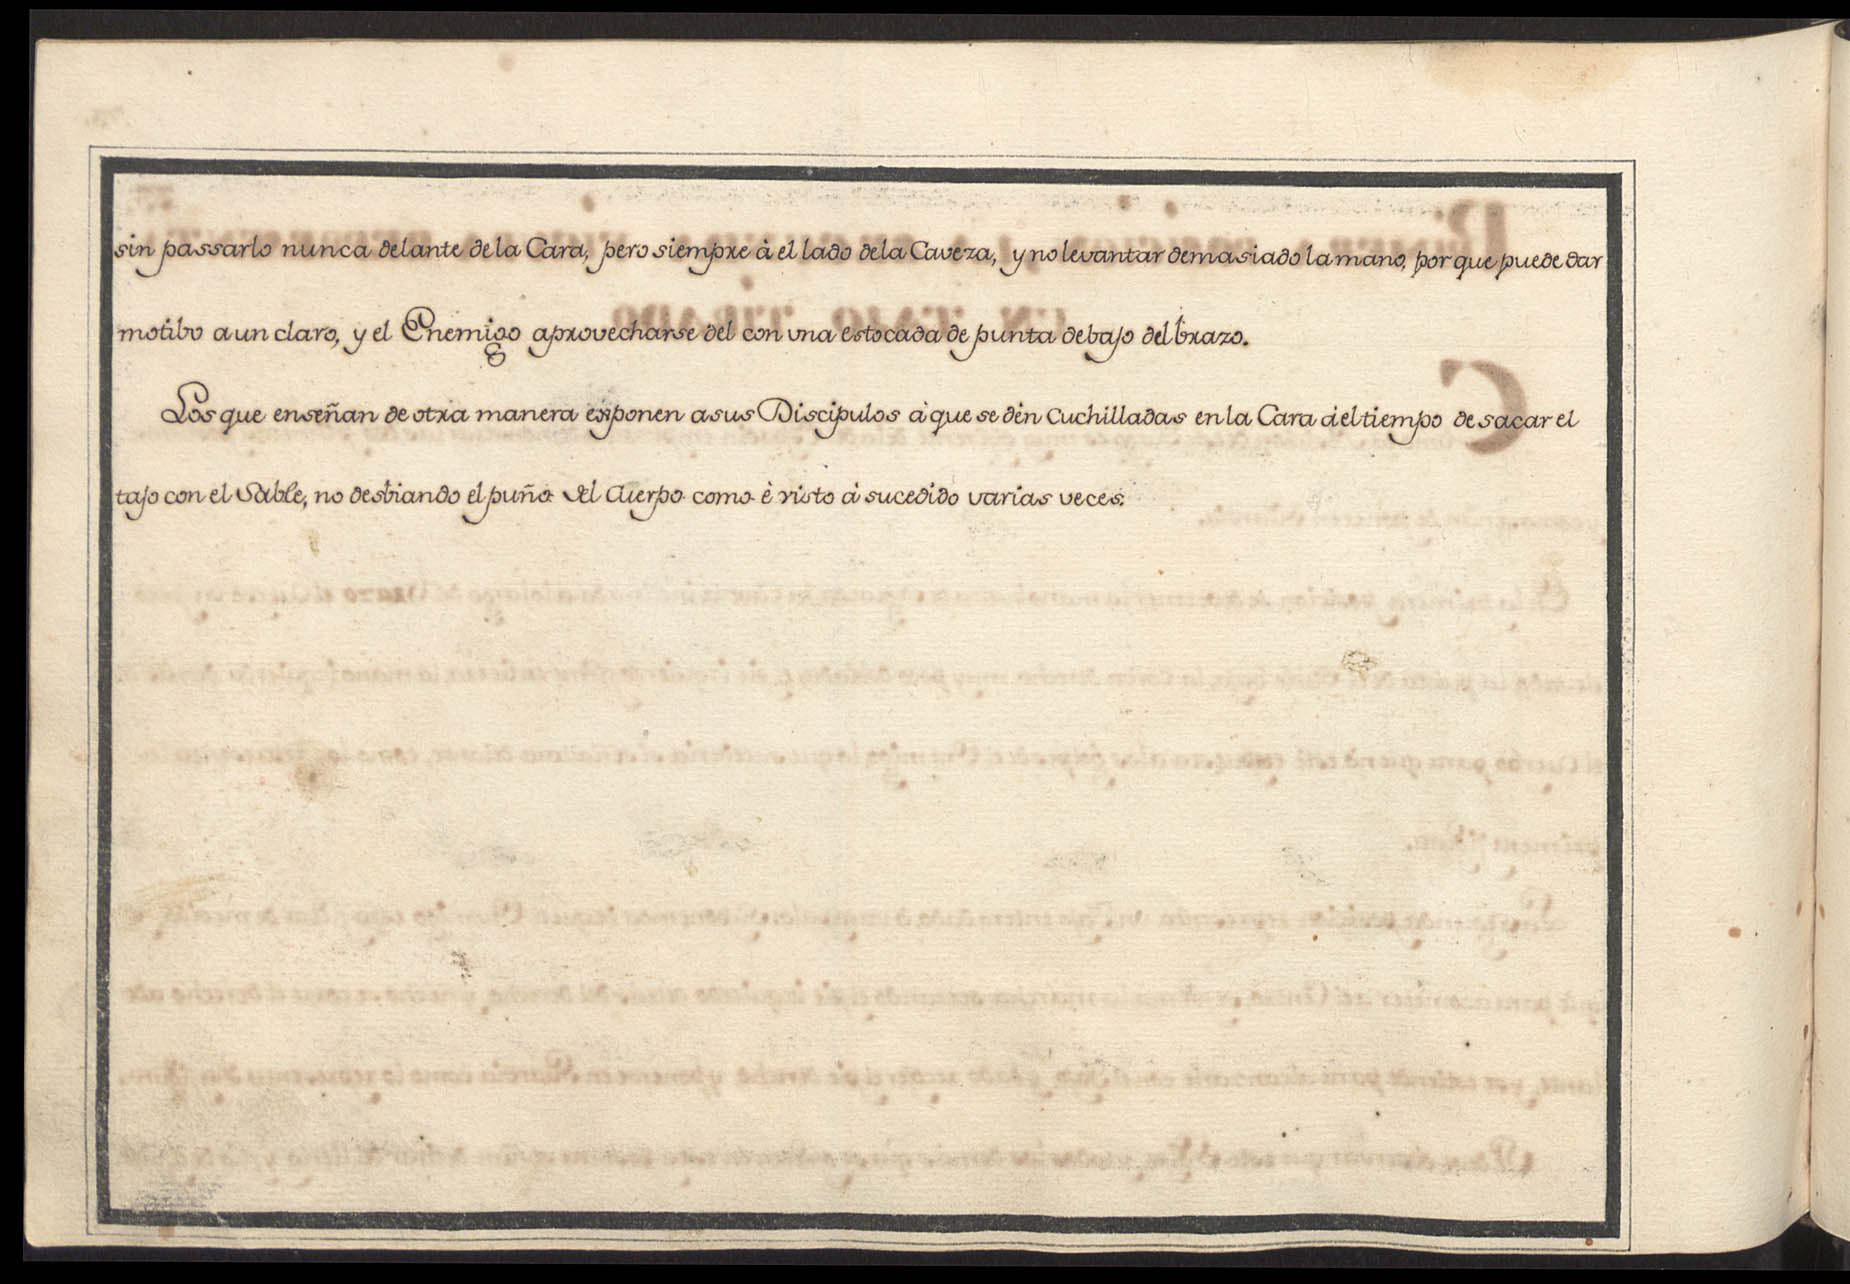 sin passarlo nunca delante de la Cara, pero siempre à el lado de la Caveza, y no levantar demasiado la mano, por que puede dar
motibo a un claro, y el Enemigo aprovecharse del con vna estocada de punta debajo del brazo.
Los que enseñan de otra manera exponen a sus Discipulos à que se dèn Cuchilladas en la Cara à el tiempo de sacar el
tajo con el Sable, no desbiando el puño del Cuerpo como è visto à sucedido varias veces.